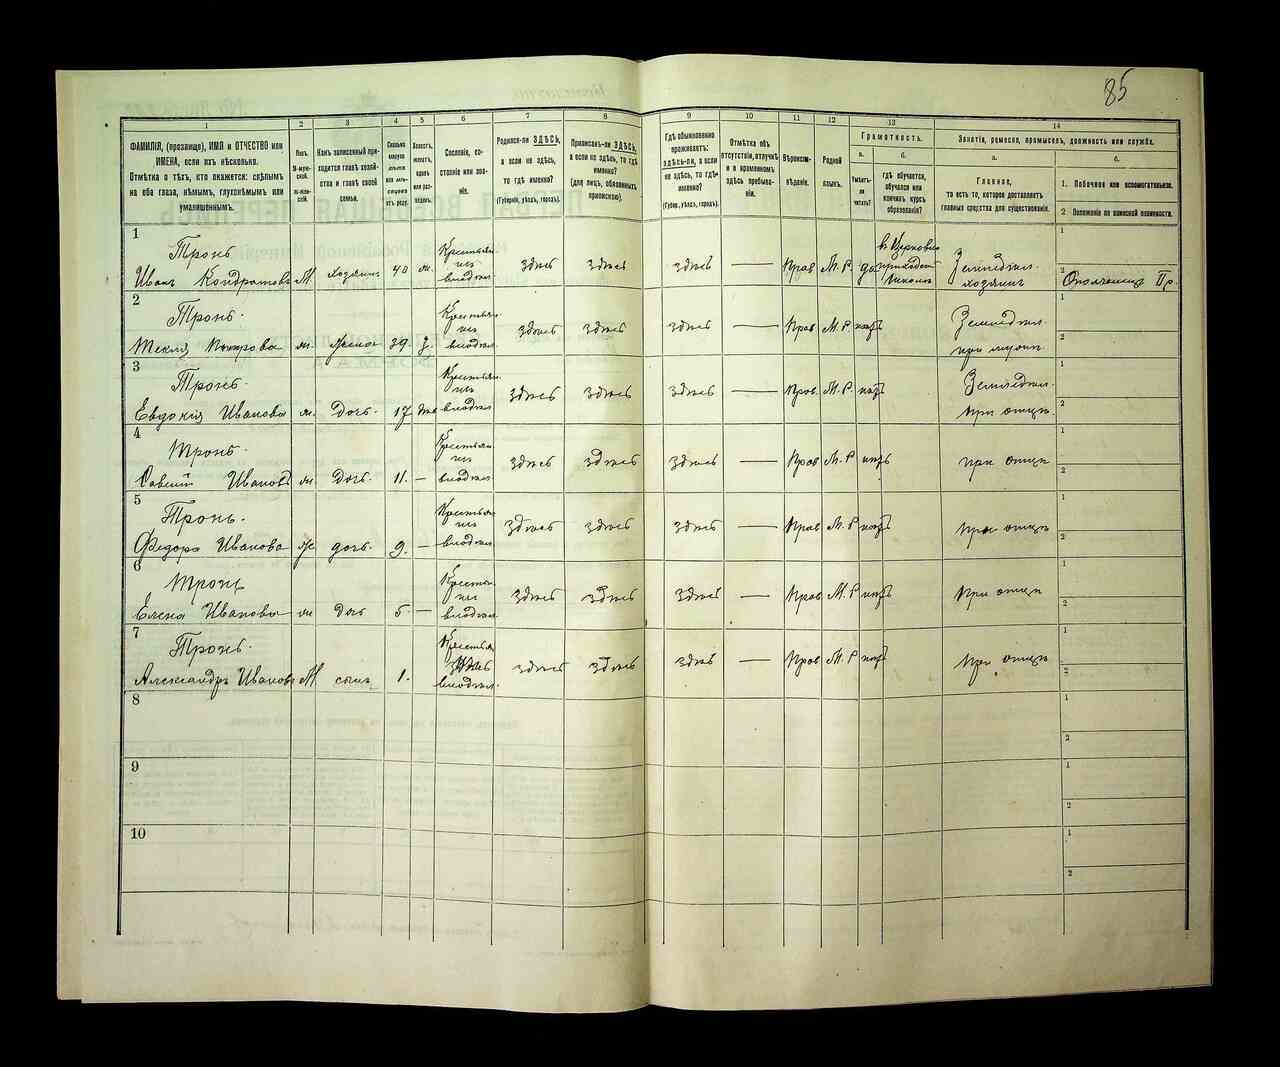 85
1 2 3 4 5 6 7 8 9 10 11 12 13 14
ФАМИЛІЯ, (прозвище), ИМЯ и ОТЧЕСТВО или
ИМЕНА, если ихъ нѣсколько.
Отмѣтка о тѣхъ, кто окажется: слѣпымъ
на оба глаза, нѣмымъ, глухонѣмымъ или
умалишеннымъ.
Полъ.
М-муж-
ской.
Ж-жен-
скій.
Какъ записанный при-
ходится главѣ хозяй-
ства и главѣ своей
семьи.
Сколько
минуло
лѣтъ
или мѣ-
сяцевъ
отъ роду.
Холостъ,
женатъ,
вдовъ
или раз-
веденъ.
Сословіе, со-
стояніе или зва-
ніе.
Родился-ли ЗДѢСЬ,
а если не здѣсь,
то гдѣ именно?
(Губернія, уѣздъ, городъ).
Приписанъ-ли ЗДѢСЬ,
а если не здѣсь, то гдѣ
именно?
(для лицъ, обязанныхъ
припискою).
Гдѣ обыкновенно
проживаетъ:
ЗДѢСЬ-ли, а если
не здѣсь, то гдѣ
именно?
(Губер., уѣздъ, городъ).
Отмѣтка объ
отсутствіи, отлучкѣ
и о временномъ
здѣсь пребыва-
ніи.
Вѣроиспо-
вѣданіе.
Родной
языкъ.
Грамотность.
а.
Умѣетъ-
ли
читать?
б.
гдѣ обучается,
обучался или
кончилъ курсъ
образованія?
Занятіе, ремесло, промыселъ, должность или служба.
а.
Главное,
то есть то, которое доставляетъ
главныя средства для существованія.
б.
1. Побочное или вспомогательное.
2 Положеніе по воинской повинности.
1
Тронь
Иванъ Кондратовъ М хозяинъ 40 ж. Крестьян. изъ владѣл. здѣсь здѣсь здѣсь — Прав М. Р. да въ Церковно приходской Школѣ Земледѣл. хозяинъ Ополченецъ
2
Тронь.
Текля ж. Жена 39. Крестьян. изъ владѣл. здѣсь здѣсь здѣсь — Прав М. Р нѣтъ Земледѣл. при мужѣ
3
Тронь.
Евдокія Иванова ж. Дочь. 17 Крестьян. изъ владѣл здѣсь здѣсь здѣсь — Прав. М. Р. нѣтъ Земледѣл. при отцѣ.
4
Тронь.
Иванов ж Дочь. 11. — Крестьян. изъ владѣл здѣсь здѣсь здѣсь — Прав М. Р нѣтъ при отцѣ
5
Тронь.
Федора Иванова ж дочь. 9. — Крестьян. изъ владѣл здѣсь здѣсь здѣсь — Прав М. Р нѣтъ при отцѣ
6
Тронь
Елена Иванова ж Дочь 5 — Крестьян изъ владѣл здѣсь здѣсь здѣсь — Прав М. Р нѣтъ при отцѣ
7
Тронь.
Александръ Иванов М сынъ 1. Крестьян владѣл. здѣсь здѣсь здѣсь — Прав М. Р нѣтъ при отцѣ
8
9
10